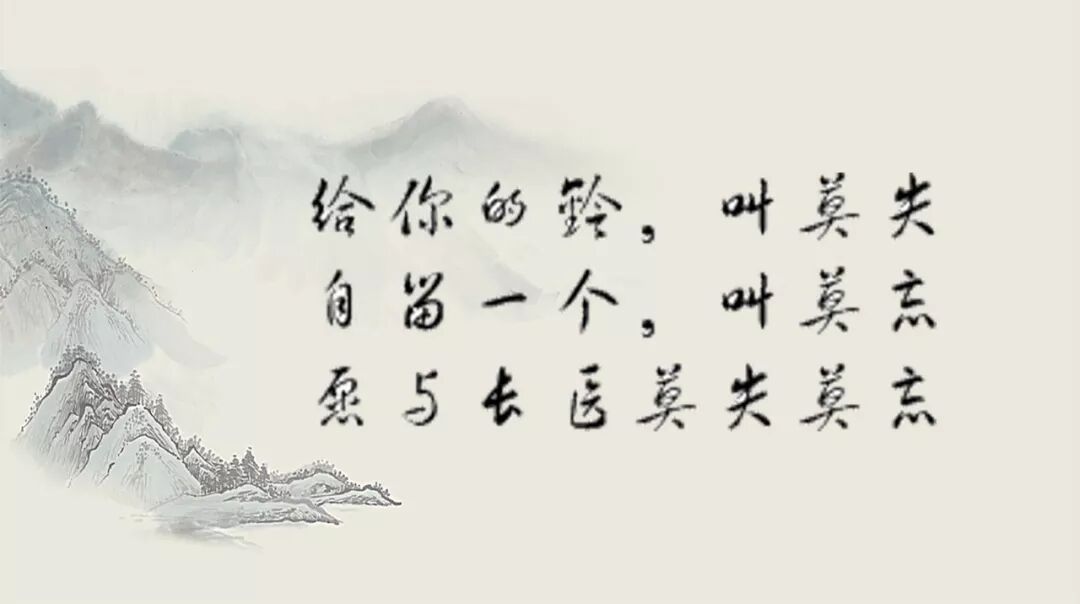 给你的鈴，叫莫失
自留一个，叫莫忘
愿与长医莫失莫忘